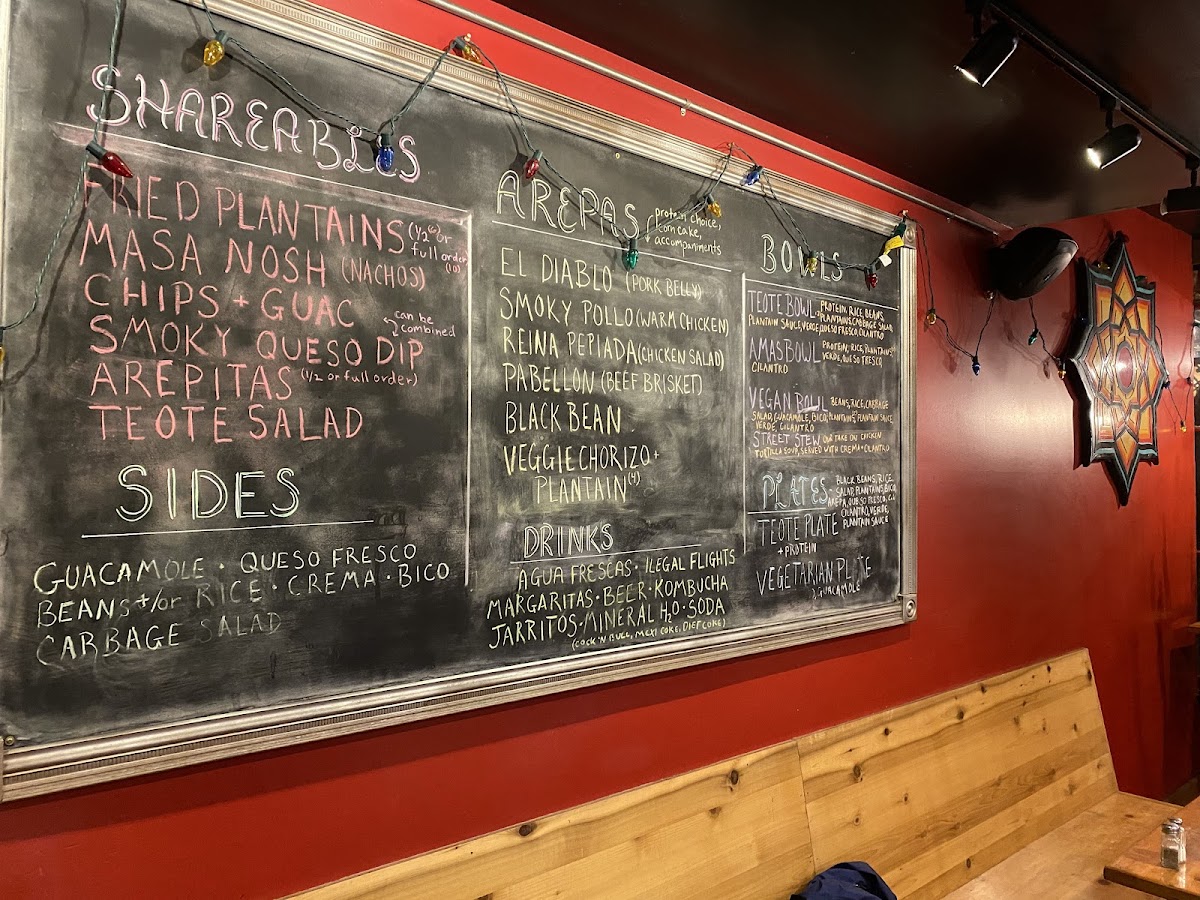 SHAREABLES
FRIED PLANTAINS (1/2 (6) or
full order
(10)
MASA NOSH (NACHOS)
CHIPS + GUAC
can be
combined
SMOKY QUESO DIP
AREPITAS (1/2 or full order)
TEOTE SALAD
SIDES
GUACAMOLE · QUESO FRESCO
BEANS +/or RICE · CREMA · BICO
CABBAGE SALAD
AREPAS
protein choice,
corn cake,
accompaniments
EL DIABLO (PORK BELLY)
SMOKY POLLO (WARM CHICKEN)
REINA PEPIADA (CHICKEN SALAD)
PABELLON (BEEF BRISKET)
BLACK BEAN
VEGGIE CHORIZO +
PLANTAIN (4)
DRINKS
AGUA FRESCAS · ILEGAL FLIGHTS
MARGARITAS · BEER · KOMBUCHA
JARRITOS · MINERAL H2O · SODA
(COCK 'N BULL, MEXI COKE, DIET COKE)
BOWLS
TEOTE BOWL PROTEIN, RICE, BEANS,
PLANTAINS, CABBAGE SALAD,
PLANTAIN SAUCE, VERDE, QUESO FRESCO, CILANTRO
AMASBOWL PROTEIN, RICE, PLANTAINS
VERDE, QUESO FRESCO
CILANTRO
VEGAN BOWL BEANS, RICE, CABBAGE
SALAD, GUACAMOLE, BICO, PLANTAINS, PLANTAIN SAUCE,
VERDE, CILANTRO
STREET STEW OUR TAKE ON CHICKEN
TORTILLA SOUP, SERVED WITH CREMA + CILANTRO
PLATES BLACK BEANS, RICE,
SALAD, PLANTAINS, BICO,
AREPA, QUESO FRESCO,
CILANTRO, VERDE,
PLANTAIN SAUCE
TEOTE PLATE
+ PROTEIN
VEGETARIAN PLATE
GUACAMOLE